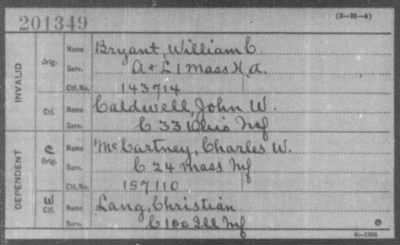 201349
(3-H-4)
INVALID
Orig.
Name Bryant, William C.
Serv. A + L 1 Mass H.A.
Ctf. No. 143714
Ctf.
Name Caldwell, John W.
Serv. C 33 Ohio Inf
DEPENDENT
C
Orig.
Name McCartney, Charles W.
Serv. C 24 Mass Inf
Ctf. No. 157110
W
Ctf.
Name Lang, Christian
Serv. C 100 Ill Inf